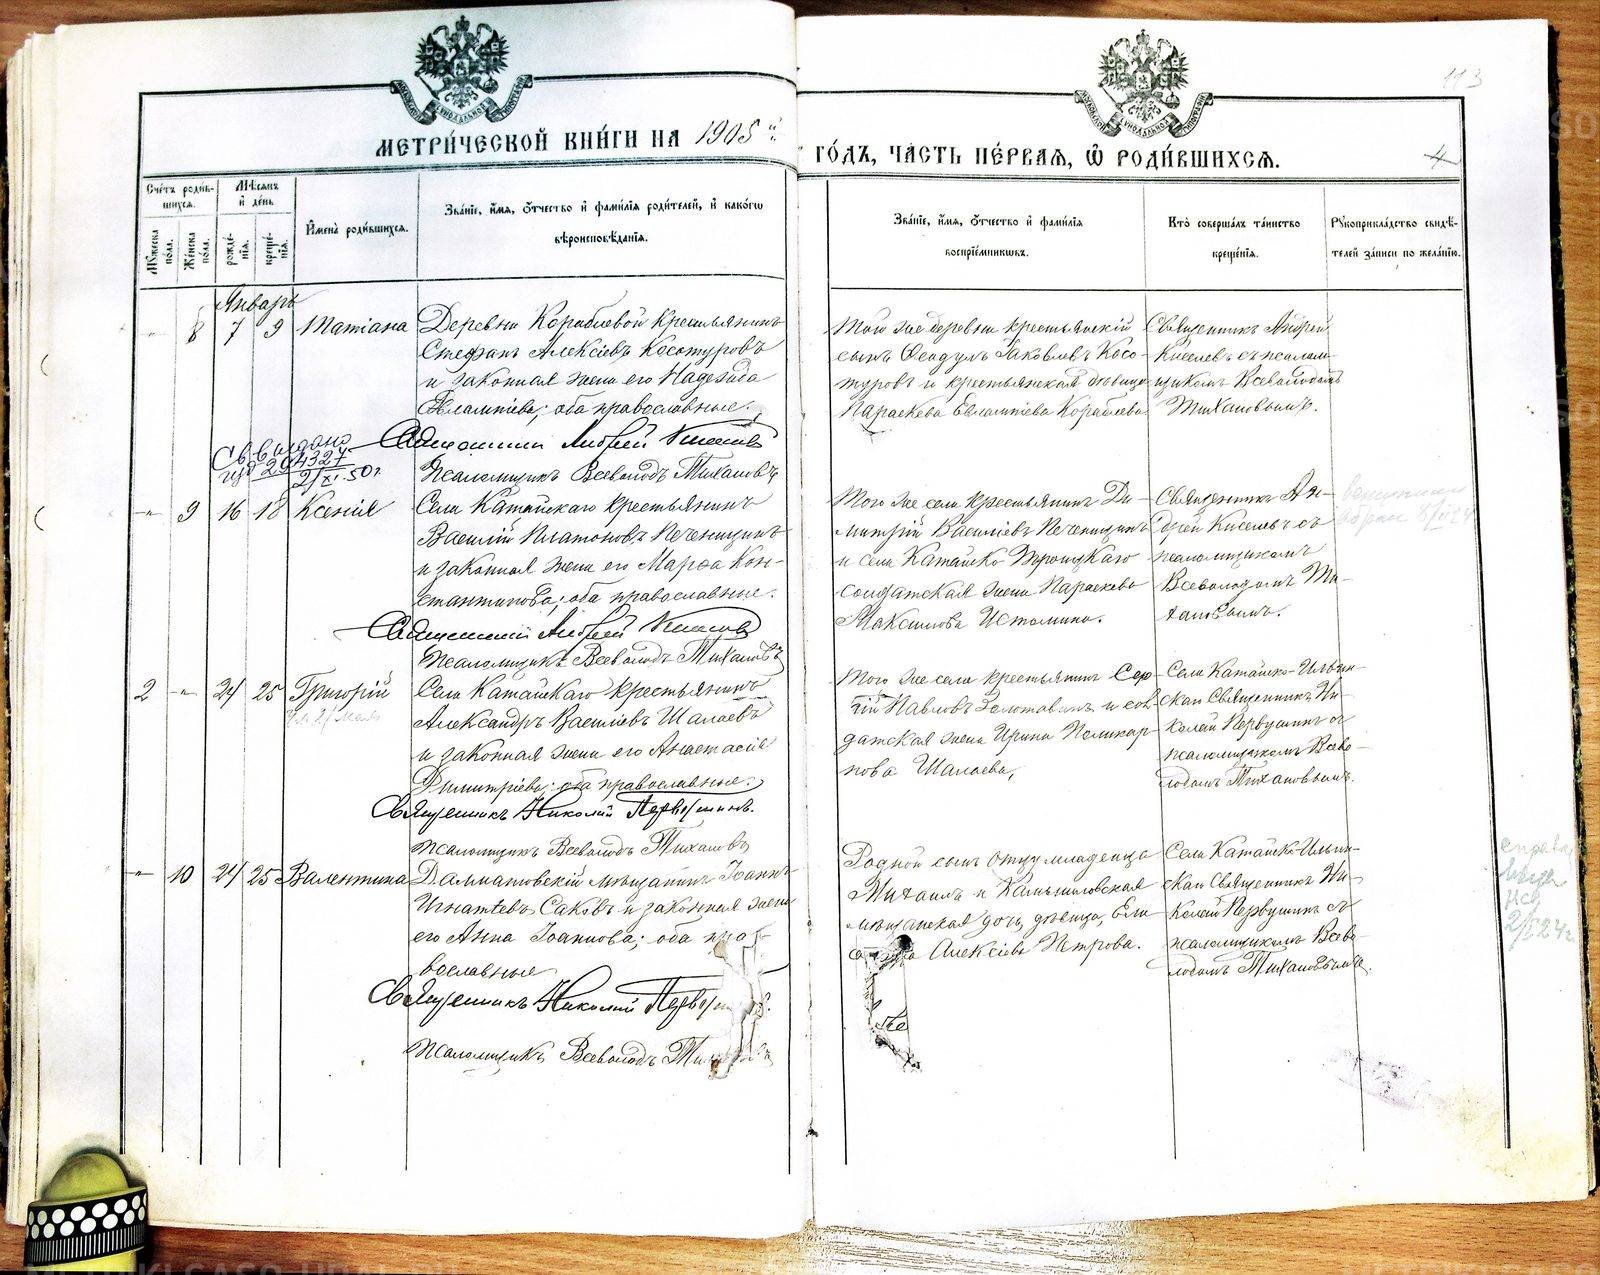 113
МЕТРИ́ЧЕСКОЙ КНИ́ГИ НА 1905й
ГО́ДЪ, ЧА́СТЬ ПЕ́РВАЯ, Ѡ РОДИ́ВШИХСЯ.
4
Сче́тъ роди́в-
шихся.
Мѣ́сяцъ
и҆ де́нь
Му́жеска
по́ла.
Же́нска
по́ла.
рожде́-
нія.
креще́-
нія.
И҆мена̀ роди́вшихся.
Зва́ніе, и҆́мя, ѻ҆́тчество и҆ фами́лія роди́телей, и҆ како́гѡ
вѣроисповѣ́данія.
Зва́ніе, и҆́мя, ѻ҆́тчество и҆ фами́лія
воспріе́мникѡвъ.
Кто̀ соверша́лъ та́инство
креще́нія.
Рꙋкоприкла́дство свидѣ́-
телей за́писи по жела́нію.
Январь
" 8 7 9 Татіана
Деревни Кораблевой крестьянинъ
Стефанъ Алексіевъ Косотуровъ
и законная жена его Надежда
Евлампіева; оба православные.
Священникъ Андрей Киселев
Псаломщикъ Всеволодъ Тихановъ
Той же деревни крестьянскій
сынъ Ѳеодулъ Іаковлевъ Косо-
туровъ и крестьянская дѣвица
Параскева Евлампіева Кораблева
Священникъ Андрей
Киселевъ съ псалом-
щикомъ Всеволодомъ
Тихановымъ.
Св. выдано
294327
2/XI 50 г.
-"- 9 16 18 Ксенія
Села Катайскаго крестьянинъ
Василій Платоновъ Печеницинъ
и законная жена его Марѳа Кон-
стантинова; оба православные.
Священникъ Андрей Киселев
Псаломщикъ Всеволодъ Тихановъ
Того же села крестьянинъ Ди-
митрій Василіевъ Печеницинъ
и села Катайско-Троицкаго
солдатская жена Параскева
Максимова Истомина.
Священникъ Ан-
дрей Киселевъ съ
псаломщикомъ
Всеволодомъ Ти-
хановымъ.
2 -"- 24 25 Григорій
Села Катайскаго крестьянинъ
Александръ Василіевъ Шалаевъ
и законная жена его Анастасія
Димитріева; оба православные.
Священникъ Николай Первушинъ.
Псаломщикъ Всеволодъ Тихановъ
Того же села крестьянинъ Сер-
гій Павловъ Золотавинъ и сол-
датская жена Ирина Поликар-
пова Шалаева,
Села Катайско-Ильин-
скаго Священникъ Ни-
колай Первушинъ съ
псаломщикомъ Всево-
лодомъ Тихановымъ.
-"- 10 24 25 Валентина
Далматовскій мѣщанинъ Іоаннъ
Игнатіевъ Саковъ и законная жена
его Анна Іоаннова; оба пра-
вославные
Священникъ Николай
Псаломщикъ Всеволодъ
Родной сынъ отцу младенца
Михаилъ и Камышловская
мѣщанская дочь, дѣвица, Ели-
Алексіева Петрова.
Села Катайск-Ильин-
скаго Священникъ Ни-
колай Первушинъ съ
псаломщикомъ Всево-
лодомъ Тихановымъ.
2/I 24 г.